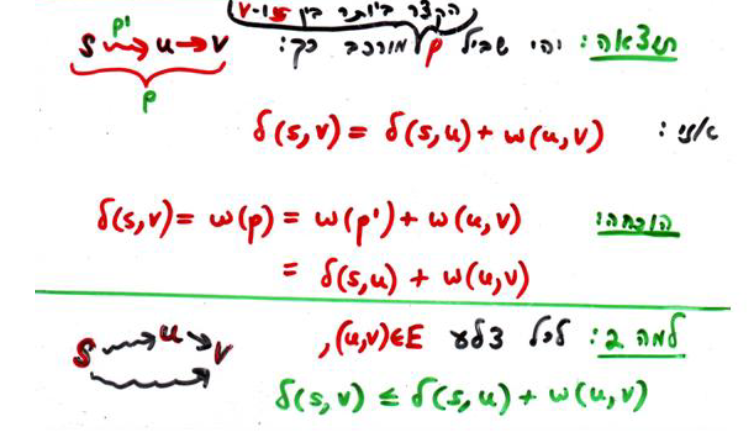 הקצר ביותר בין s ו-v
תוצאה: יהי שביל p מורכב כך: s p' u → v
p
אזי: δ(s,v) = δ(s,u) + w(u,v)
הוכחה: δ(s,v) = w(p) = w(p') + w(u,v)
= δ(s,u) + w(u,v)
למה 2: לכל צלע (u,v)∈E, s u v
δ(s,v) ≤ δ(s,u) + w(u,v)